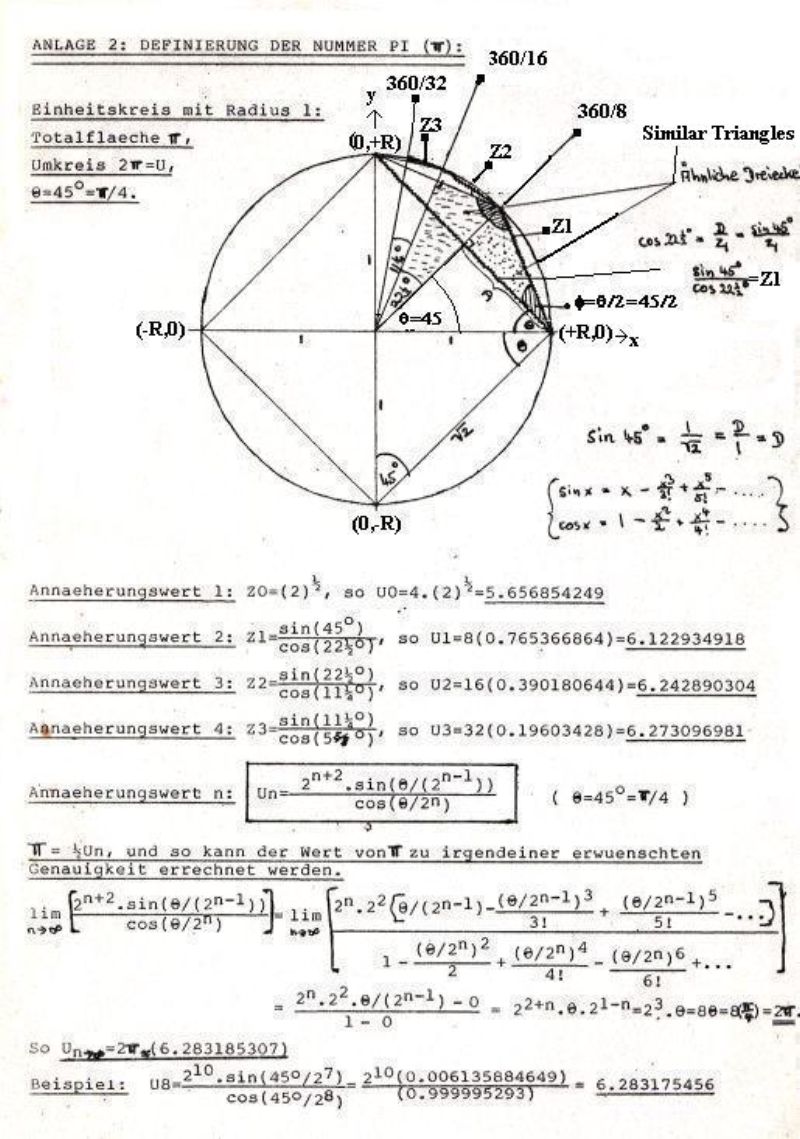 ANLAGE 2: DEFINIERUNG DER NUMMER PI (π):
360/16
360/32
y
Einheitskreis mit Radius 1:
360/8
Z3
Totalflaeche π,
(0,+R)
Similar Triangles
Z2
Umkreis 2π=U,
Ähnliche Dreiecke
θ=45°=π/4.
Z1
cos 22½° = D/Z₁ = sin 45°/Z₁
1
11¼°
sin 45°/cos 22½° =Z1
22½°
D
ϕ=θ/2=45/2
θ=45
θ
(-R,0)
(+R,0)→x
1
1
θ
1
√2
sin 45° = 1/√2 = D/1 = D
45°
{ sin x = x - x³/3! + x⁵/5! - ....
cos x = 1 - x²/2 + x⁴/4! - .... }
(0,-R)
Annaeherungswert 1: Z0=(2)^½, so U0=4.(2)^½=5.656854249
Annaeherungswert 2: Z1=sin(45°)/cos(22½°), so U1=8(0.765366864)=6.122934918
Annaeherungswert 3: Z2=sin(22½°)/cos(11¼°), so U2=16(0.390180644)=6.242890304
Annaeherungswert 4: Z3=sin(11¼°)/cos(5⅝°), so U3=32(0.19603428)=6.273096981
Annaeherungswert n: Un=2^(n+2).sin(θ/(2^(n-1)))/cos(θ/2^n) ( θ=45°=π/4 )
π= ½Un, und so kann der Wert von π zu irgendeiner erwuenschten
Genauigkeit errechnet werden.
lim n→∞ [2^(n+2).sin(θ/(2^(n-1)))/cos(θ/2^n)] = lim n→∞ [2^n.2²(θ/(2^(n-1)-(θ/2^(n-1))³/3! + (θ/2^(n-1))⁵/5! -...)/1-(θ/2^n)²/2+(θ/2^n)⁴/4!-(θ/2^n)⁶/6!+...]
= 2^n.2².θ/(2^(n-1)) - 0/1 - 0 = 2^(2+n).θ.2^(1-n)=2³.θ=8θ=8(π/4)=2π.
So Un→∞=2π≈(6.283185307)
Beispiel: U8=2^10.sin(45°/2^7)/cos(45°/2^8)=2^10(0.006135884649)/(0.999995293) = 6.283175456